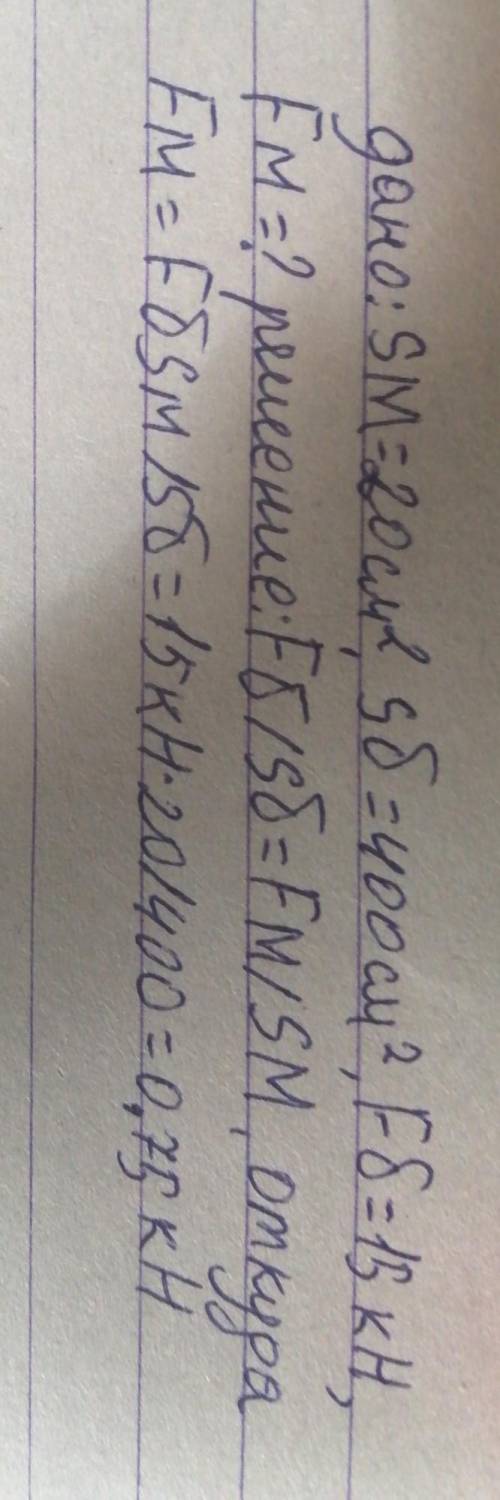 дано: SM=20см², Sб=400см², Fб=15 кН,
FM=? решение: Fб/Sб=FM/SM, откуда
FM=FбSM/Sб=15кН·20/400=0,75 кН